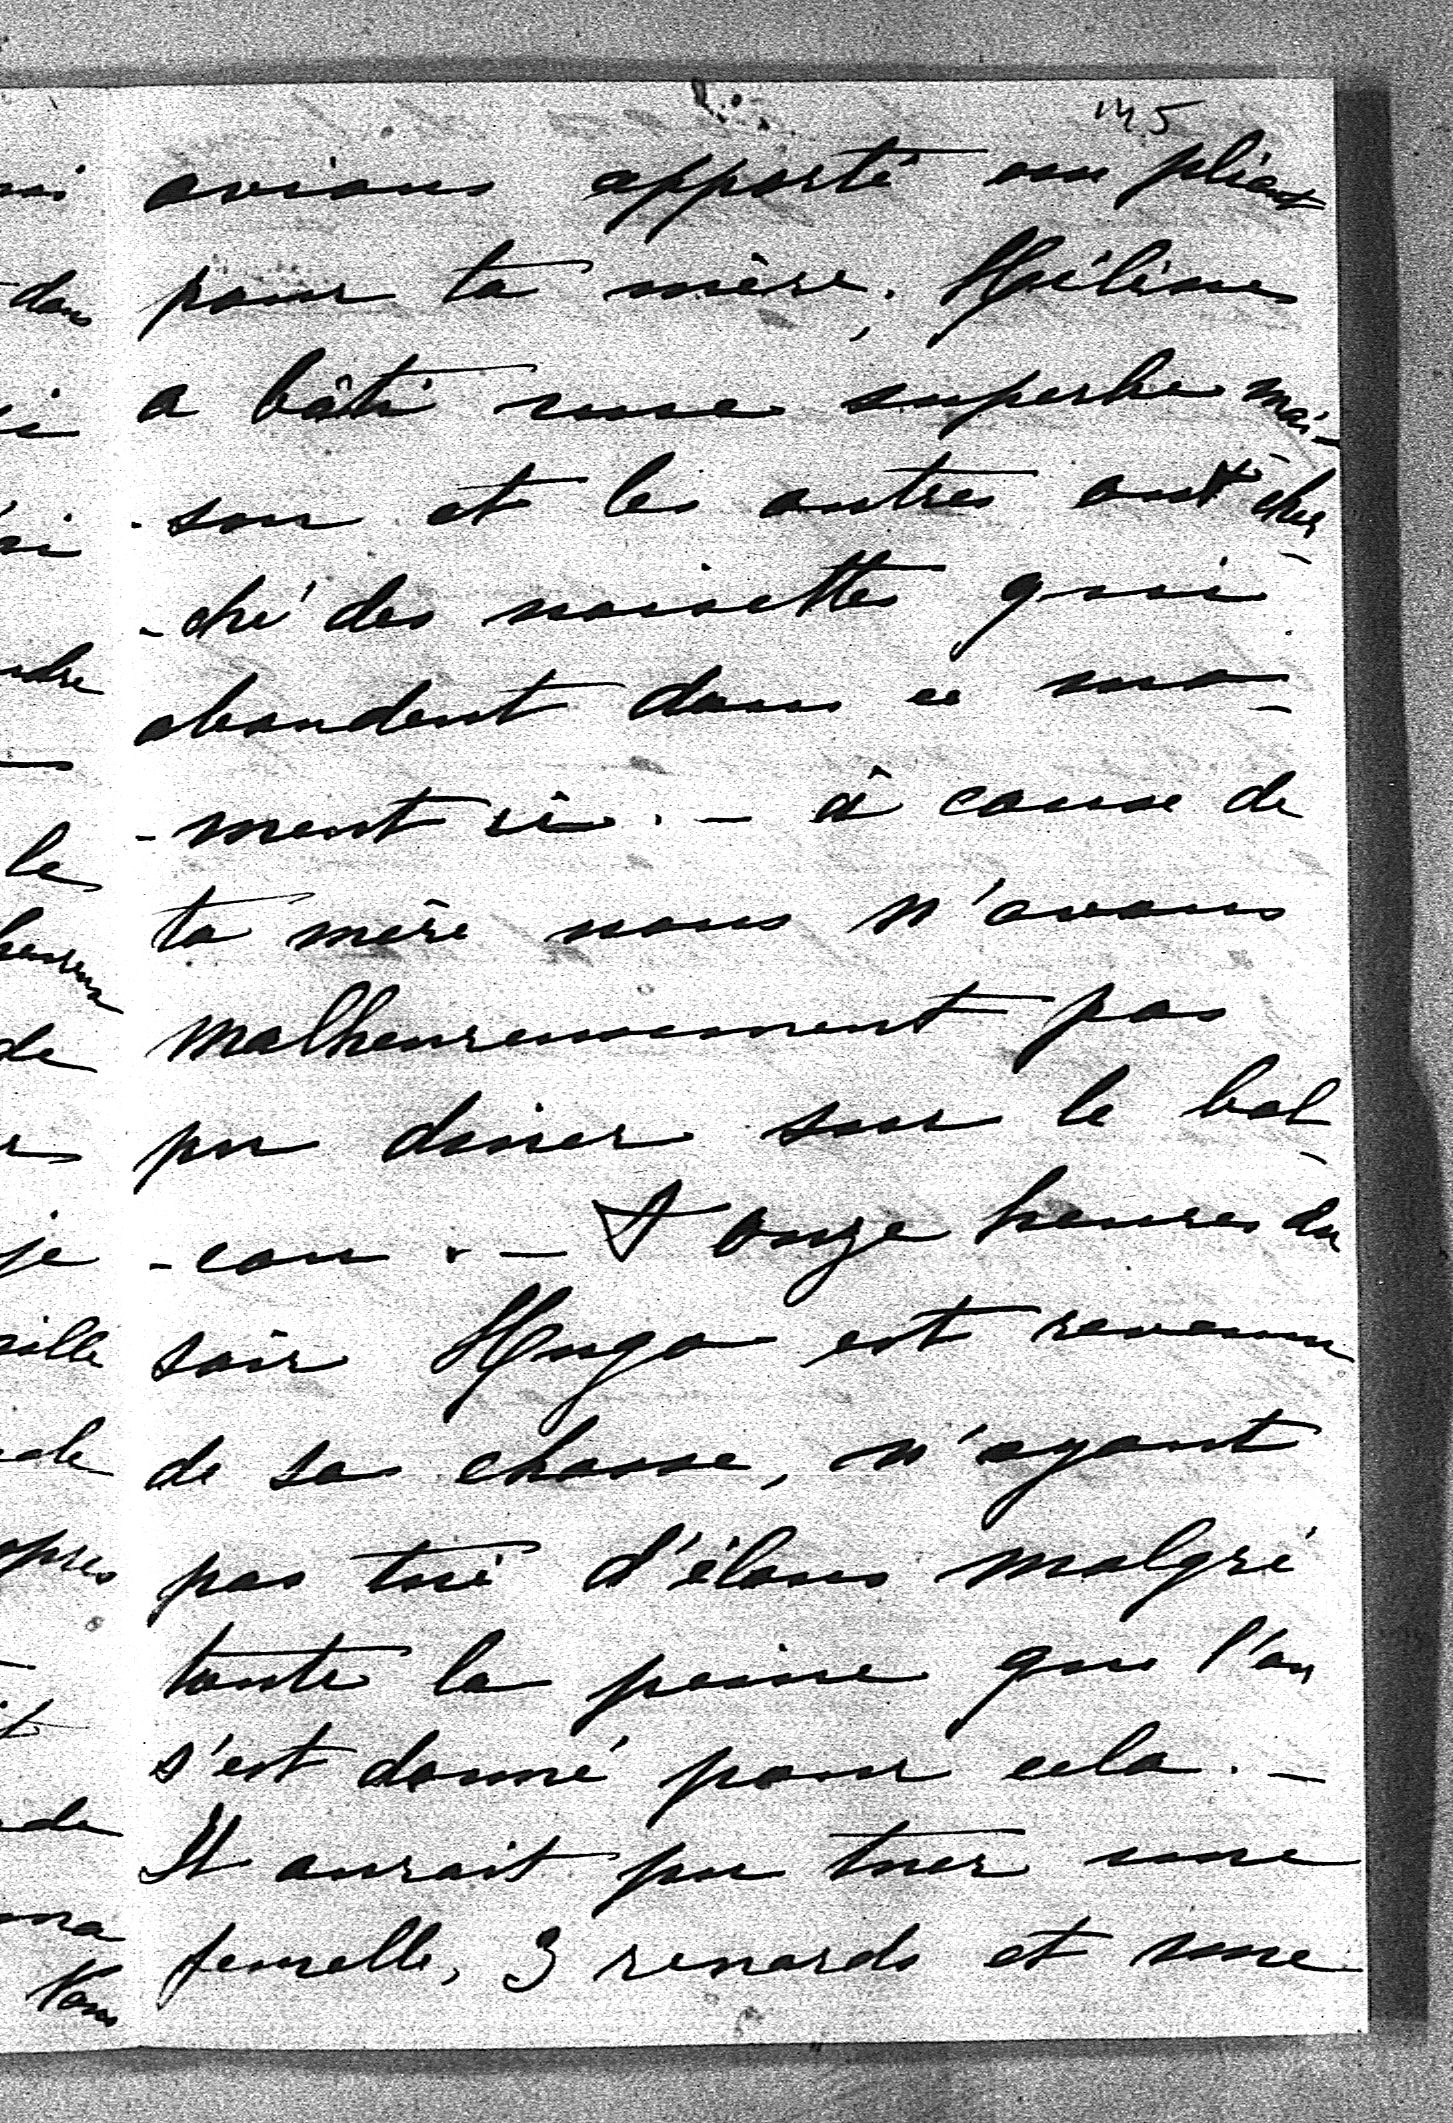 145
avions apporté un pliant
pour ta mère, Hélène
a bâti une superbe mai-
- son et les autres ont cher
- ché des noisettes qui
abondent dans ce mo-
- ment ici. - à cause de
ta mère nous n'avons
malheureusement pas
pu diner sur le bal-
- con. - A onze heures du
soir Hugo est revenu
de sa chasse, n'ayant
pas tué d'élans malgré
toute la peine que l'on
s'est donné pour cela. -
Il aurait pu tuer une
femelle, 3 renards et une